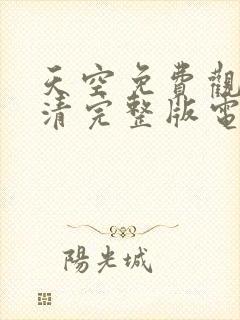 天空免費觀
清完整版電
陽光城